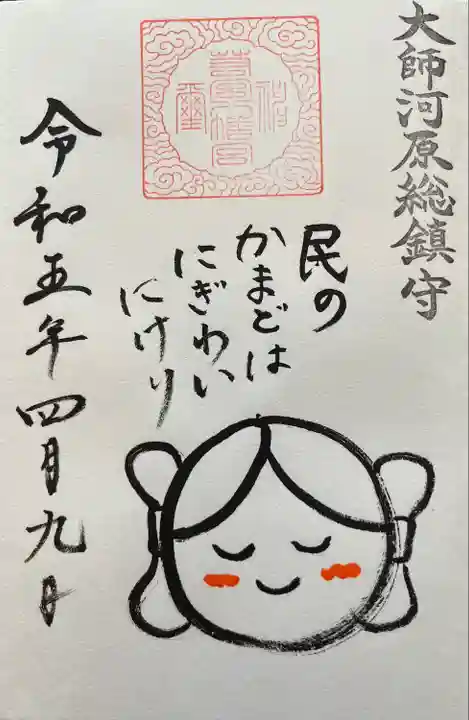 大師河原総鎮守
民の
かまどは
にぎわい
にけり
令和五年四月九日